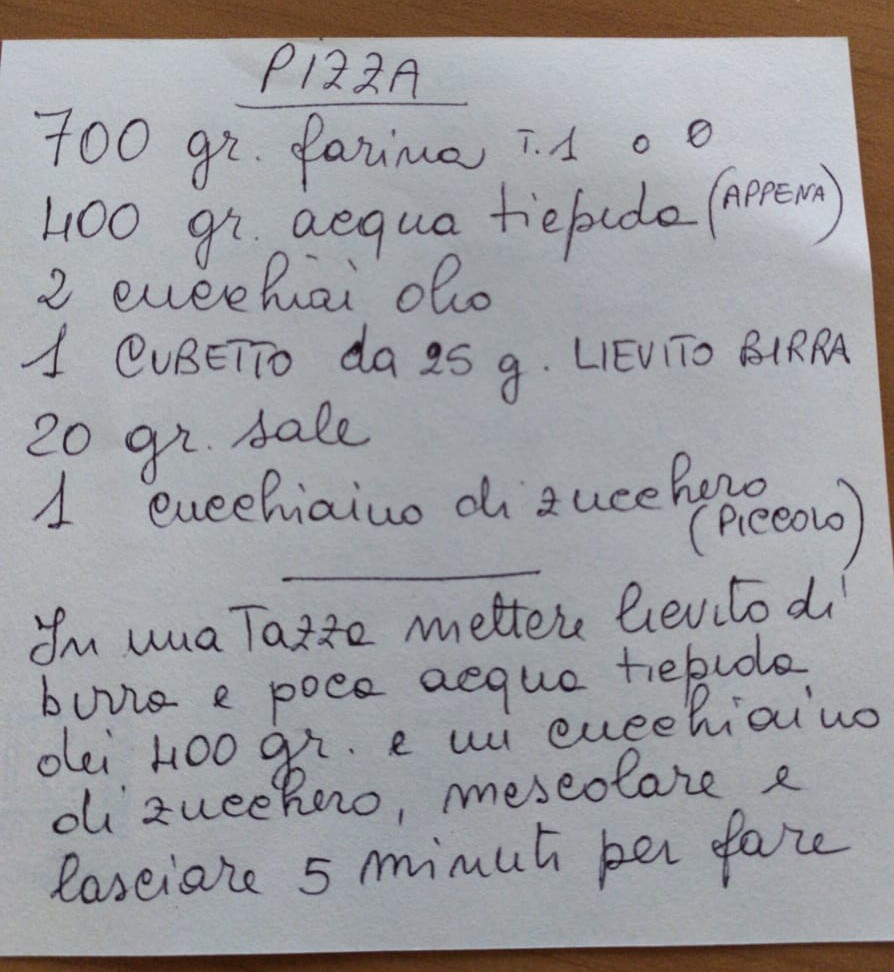 PIZZA
700 gr. farina T.1 o 0
400 gr. acqua tiepida (APPENA)
2 cucchiai olio
1 CUBETTO da 25 g. LIEVITO BIRRA
20 gr. sale
1 cucchiaino di zucchero
(PICCOLO)
In una Tazza mettere lievito di
birra e poca acqua tiepida
dei 400 gr. e un cucchiaino
di zucchero, mescolare e
lasciare 5 minuti per fare